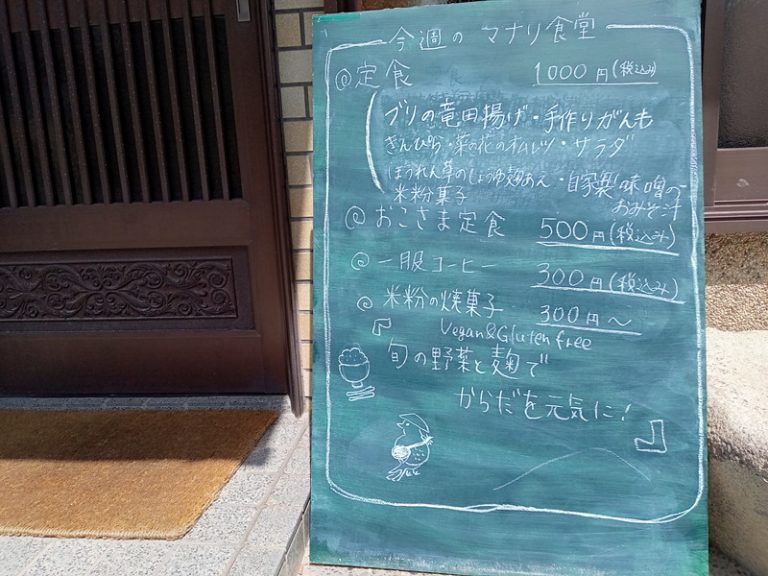 今週の マナリ食堂
@定食 1000円(税込み)
ブリの竜田揚げ・手作りがんも
きんぴら・菜の花のオムレツ・サラダ
ほうれん草のしょうゆ麹あん・自家製味噌の
おみそ汁
米粉菓子
@おこさま定食 500円(税込み)
@一服コーヒー 300円(税込み)
@米粉の焼菓子 300円〜
Vegan&Gluten free
旬の野菜と麹で
からだを元気に!